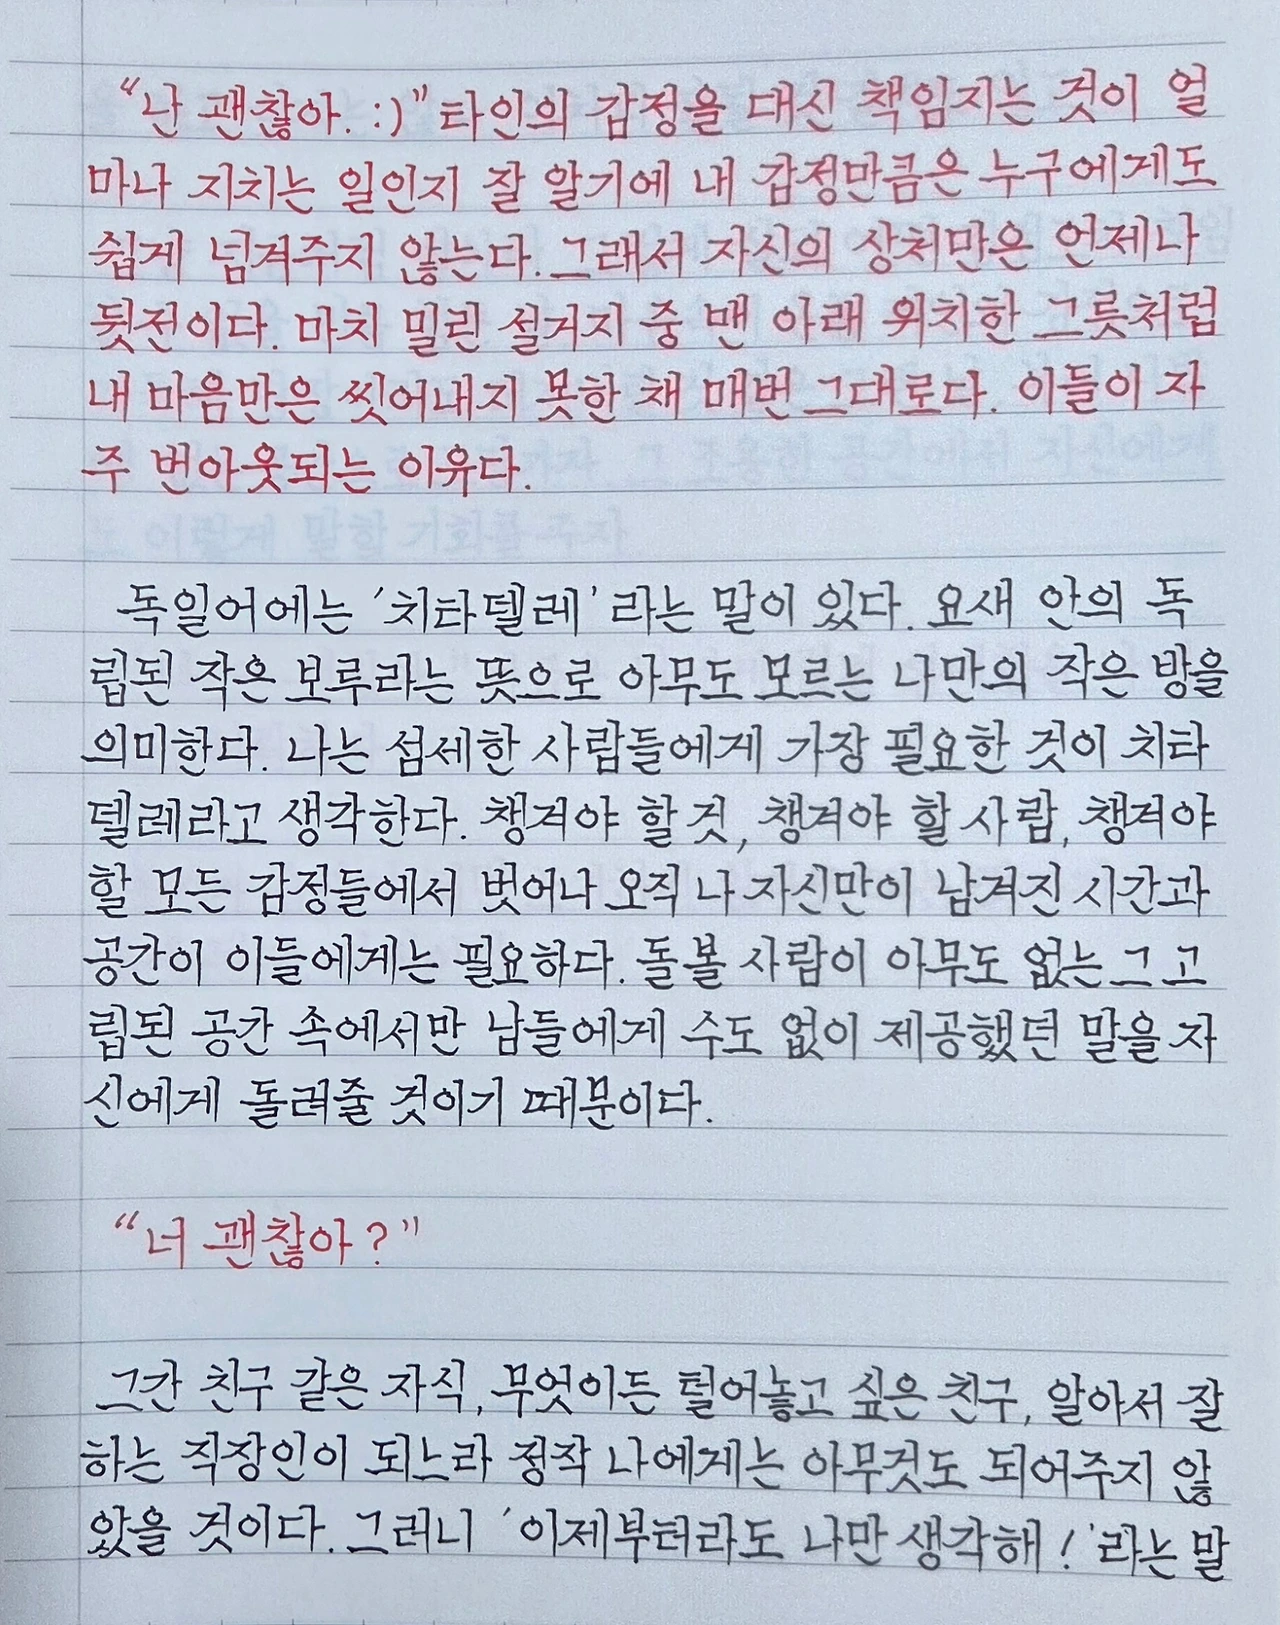 "난 괜찮아. :)" 타인의 감정을 대신 책임지는 것이 얼
마나 지치는 일인지 잘 알기에 내 감정만큼은 누구에게도
쉽게 넘겨주지 않는다. 그래서 자신의 상처만은 언제나
뒷전이다. 마치 밀린 설거지 중 맨 아래 위치한 그릇처럼
내 마음만은 씻어내지 못한 채 매번 그대로다. 이들이 자
주 번아웃되는 이유다.
독일어에는 '치타델레' 라는 말이 있다. 요새 안의 독
립된 작은 보루라는 뜻으로 아무도 모르는 나만의 작은 방을
의미한다. 나는 섬세한 사람들에게 가장 필요한 것이 치타
델레라고 생각한다. 챙겨야 할 것, 챙겨야 할 사람, 챙겨야
할 모든 감정들에서 벗어나 오직 나 자신만이 남겨진 시간과
공간이 이들에게는 필요하다. 돌볼 사람이 아무도 없는 그 고
립된 공간 속에서만 남들에게 수도 없이 제공했던 말을 자
신에게 돌려줄 것이기 때문이다.
"너 괜찮아?"
그간 친구 같은 자식, 무엇이든 털어놓고 싶은 친구, 알아서 잘
하는 직장인이 되느라 정작 나에게는 아무것도 되어주지 않
았을 것이다. 그러니 '이제부터라도 나만 생각해!'라는 말